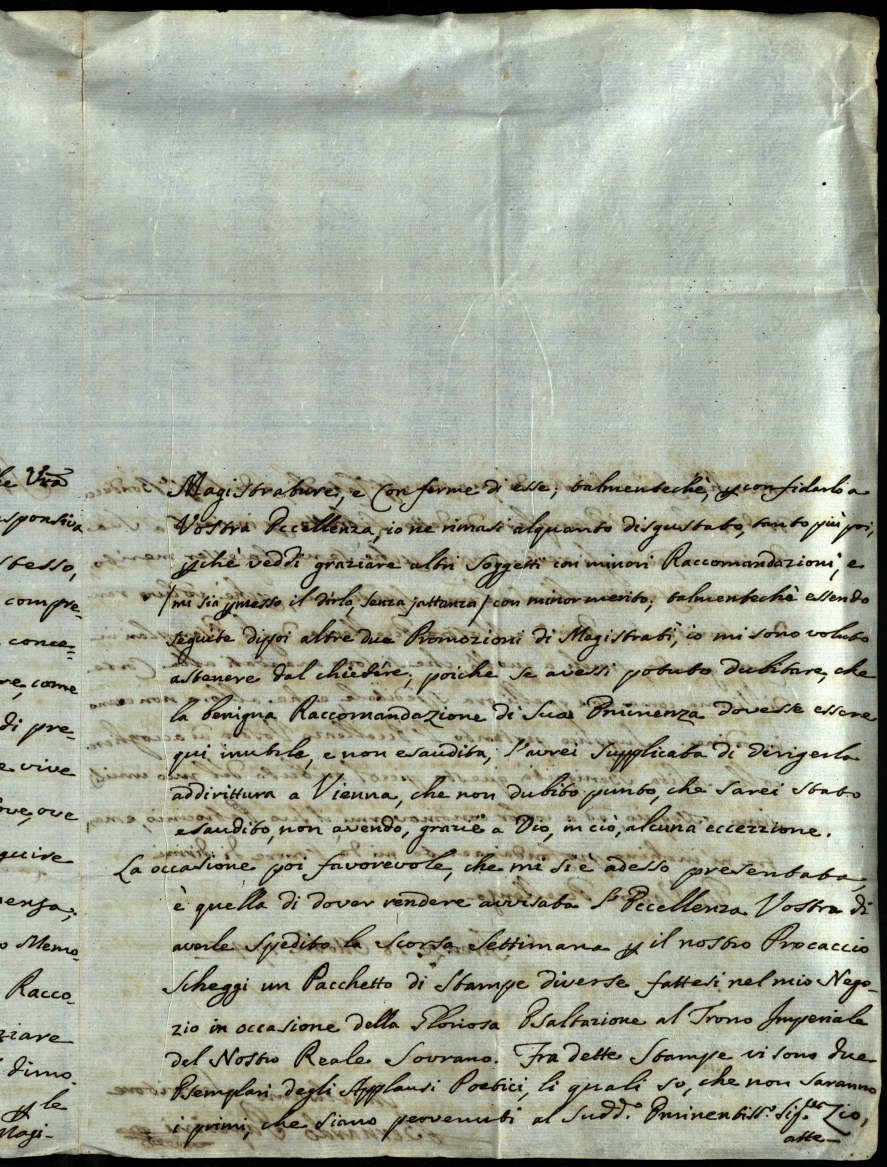 he Vra
esponsiva
stesso,
compre-
conce-
re, come
di pre-
e vive
ove, ove
guire
pensa;
o Memo-
Racco-
ziare
dimo-
ple
Magi-
Magistrature, e Conferme di esse; talmentechè, p confidarlo a
Vostra Eccellenza, io ne rimasi alquanto disgustato, tanto più poi,
pchè veddi graziare altri Soggetti con minori Raccomandazioni, e
/mi sia pmesso il dirlo, senza jattanza/ con minor merito; talmentechè essendo
seguite dipoi altre due Promozioni di Magistrati, io mi sono voluto
astenere dal chiedire; poiche se avessi potuto dubitare, che
la benigna Raccomandazione di Sua Eminenza dovesse essere
qui inutile, e non esaudita, l'avrei supplicata di dirigerla
addirittura a Vienna, che non dubito punto, che sarei stato
esaudito, non avendo, grazie a Dio, in ciò, alcuna eccezzione.
La occasione poi favorevole, che mi si è adesso presentata,
è quella di dover rendere avvisata l'Eccellenza Vostra di
averle spedito la scorsa Settimana p il nostro Procaccio
Scheggi un Pacchetto di Stampe diverse fattesi nel mio Nego-
zio in occasione della Gloriosa Esaltazione al Trono Imperiale
del Nostro Reale Sovrano. Fra dette Stampe vi sono due
Esemplari degli Applausi Poetici, li quali so, che non saranno
i primi, che siano pervenuti al Sudd.o Eminentiss.o Sig.re Zio,
atte-